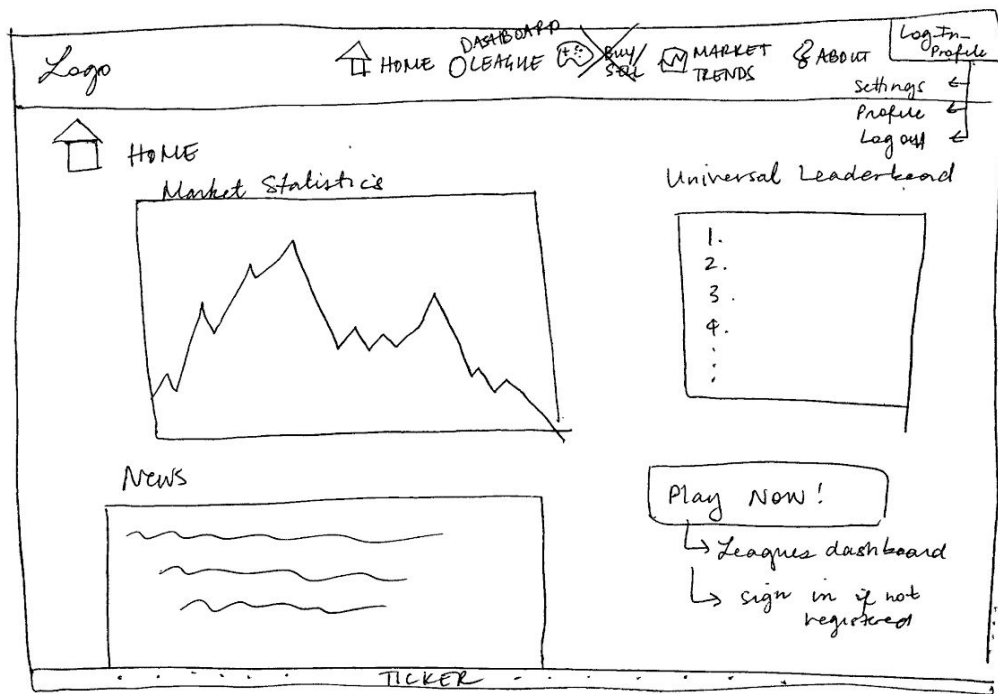 Logo
HOME
DASHBOARD
LEAGUE
Buy/
Sell
MARKET
TRENDS
ABOUT
Log In-
Profile
Settings
Profile
Log out
HOME
Market Statistics
Universal Leaderboard
1.
2.
3.
4.
News
Play Now!
Leagues dashboard
sign in if not
registered
TICKER